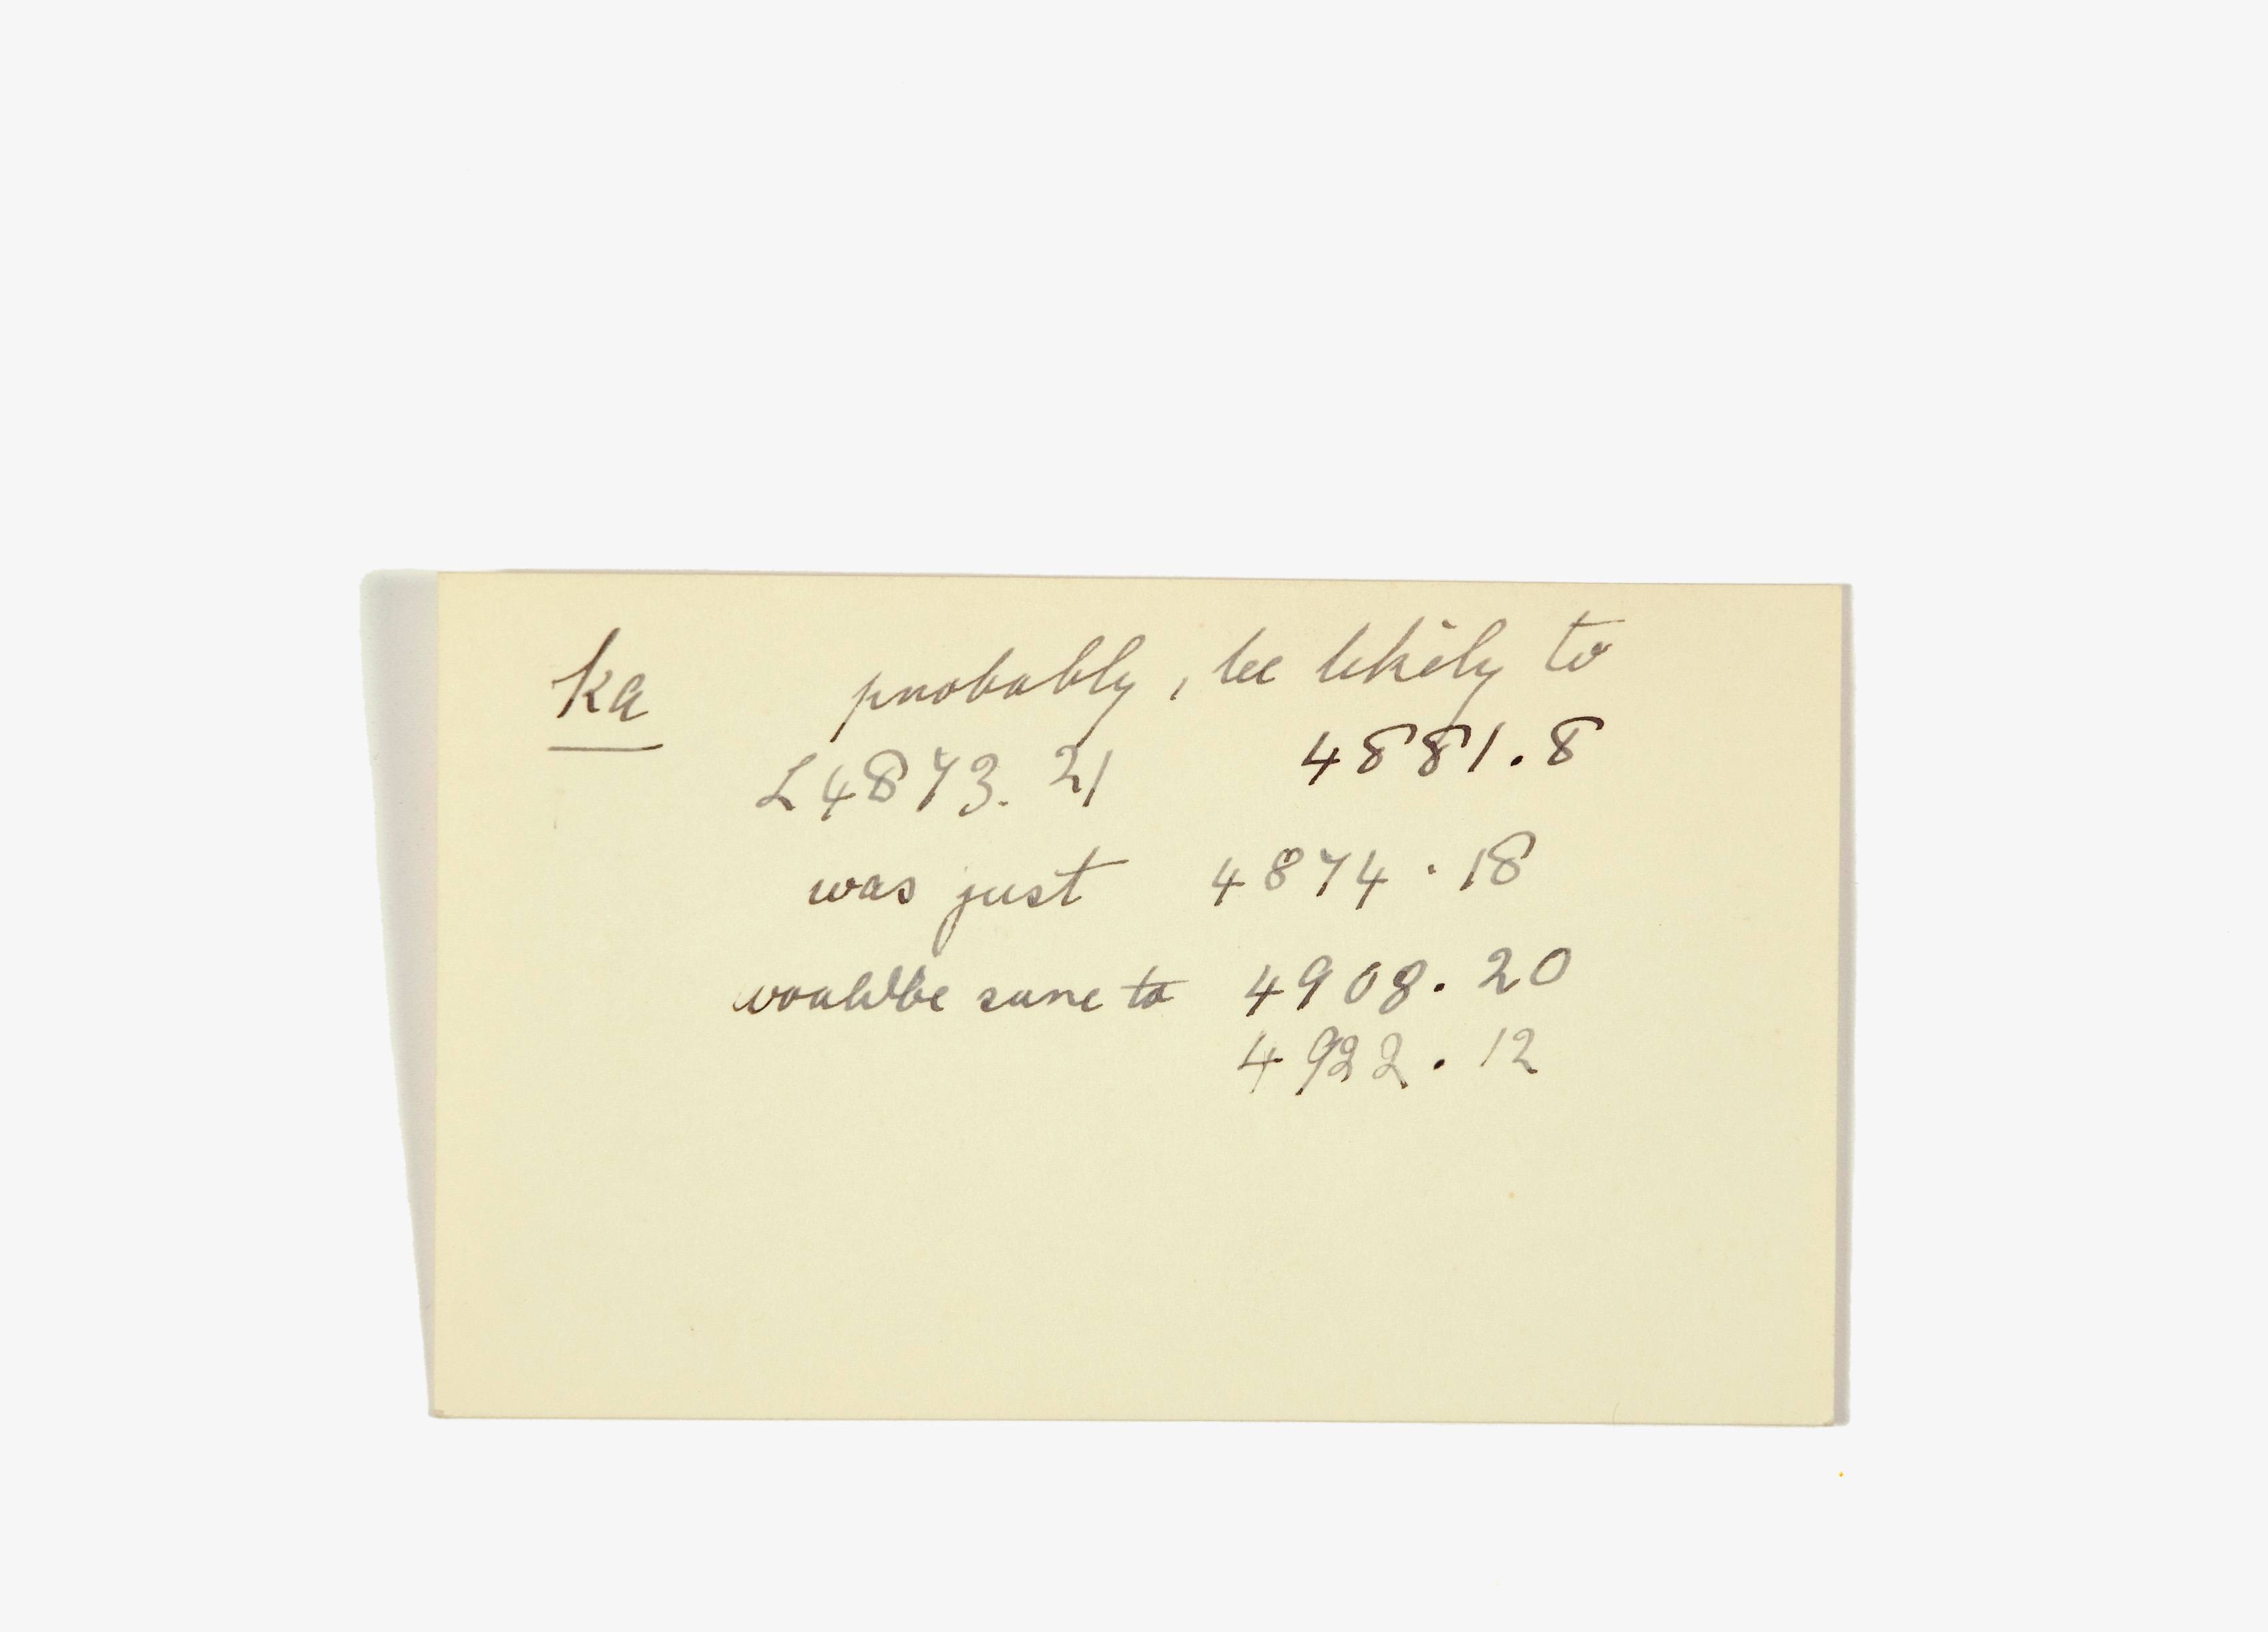 ka probably, be likely to
L4873.21 4881.8
was just 4874.18
would be sure to 4908.20
4922.12